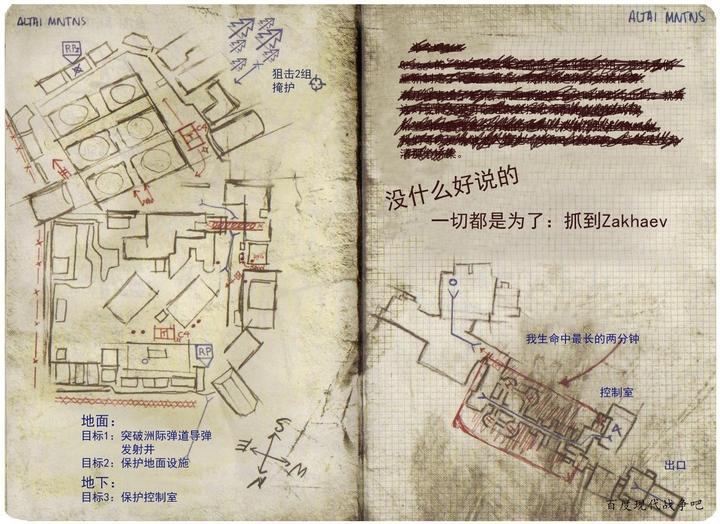 ALTAI MNTNS
RP2
狙击2组
掩护
C4
C4
RP
地面：
目标1：突破洲际弹道导弹
发射井
目标2：保护地面设施
地下：
目标3：保护控制室
S
E
W
N
ALTAI MNTNS
没什么好说的
一切都是为了：抓到Zakhaev
我生命中最长的两分钟
控制室
出口
百度现代战争吧